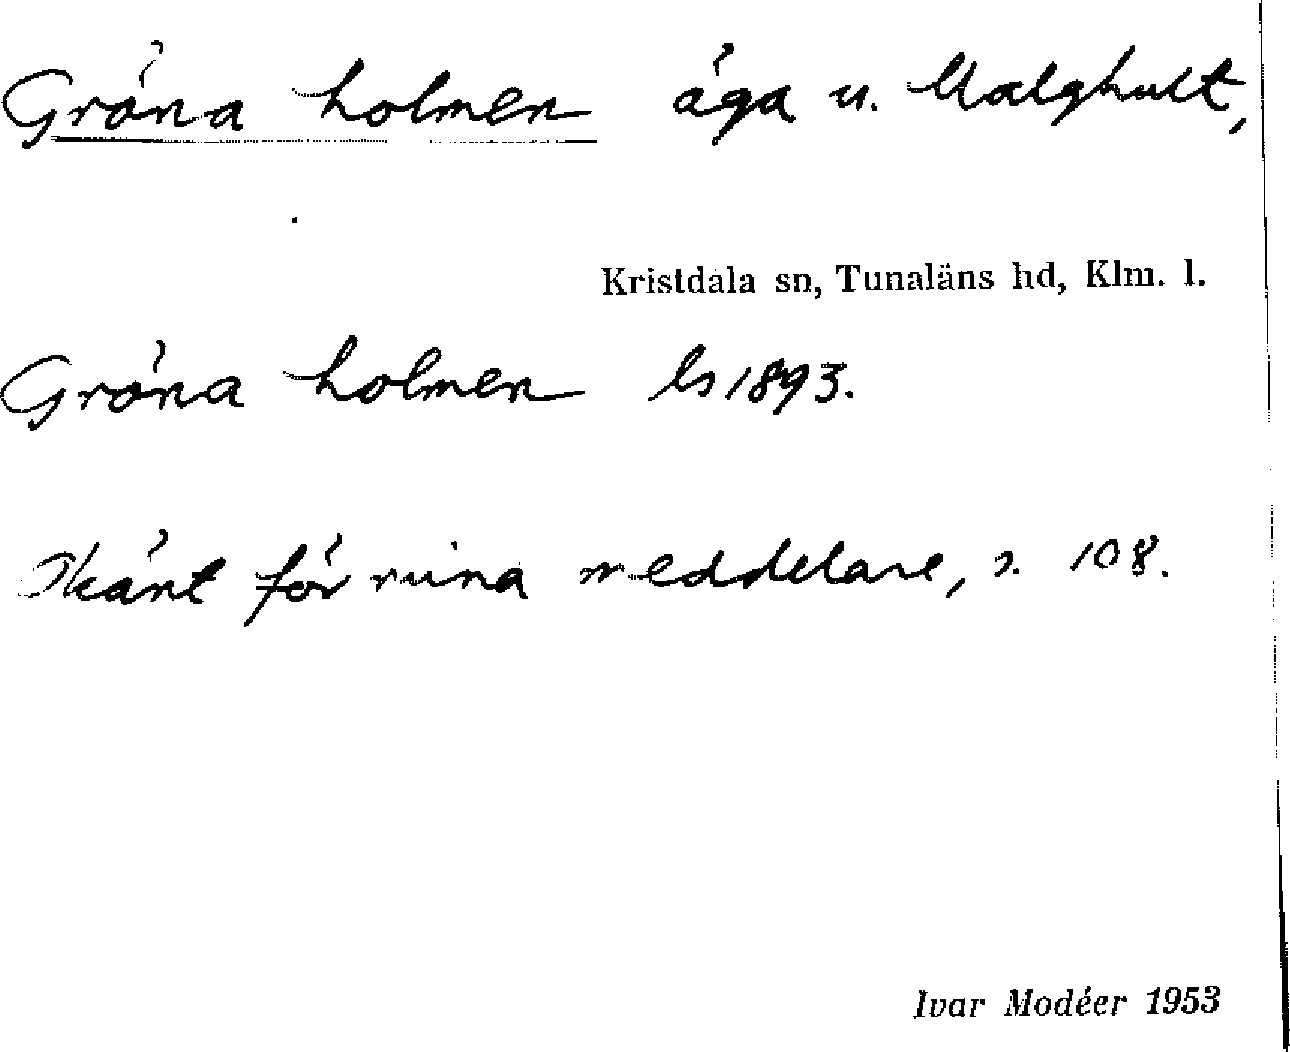 Gröna holmen äga u. Malghult,
Kristdala sn, Tunaläns hd, Klm. l.
Gröna holmen ls 1893.
Okänt för mina meddelare, s. 108.
Ivar Modéer 1953